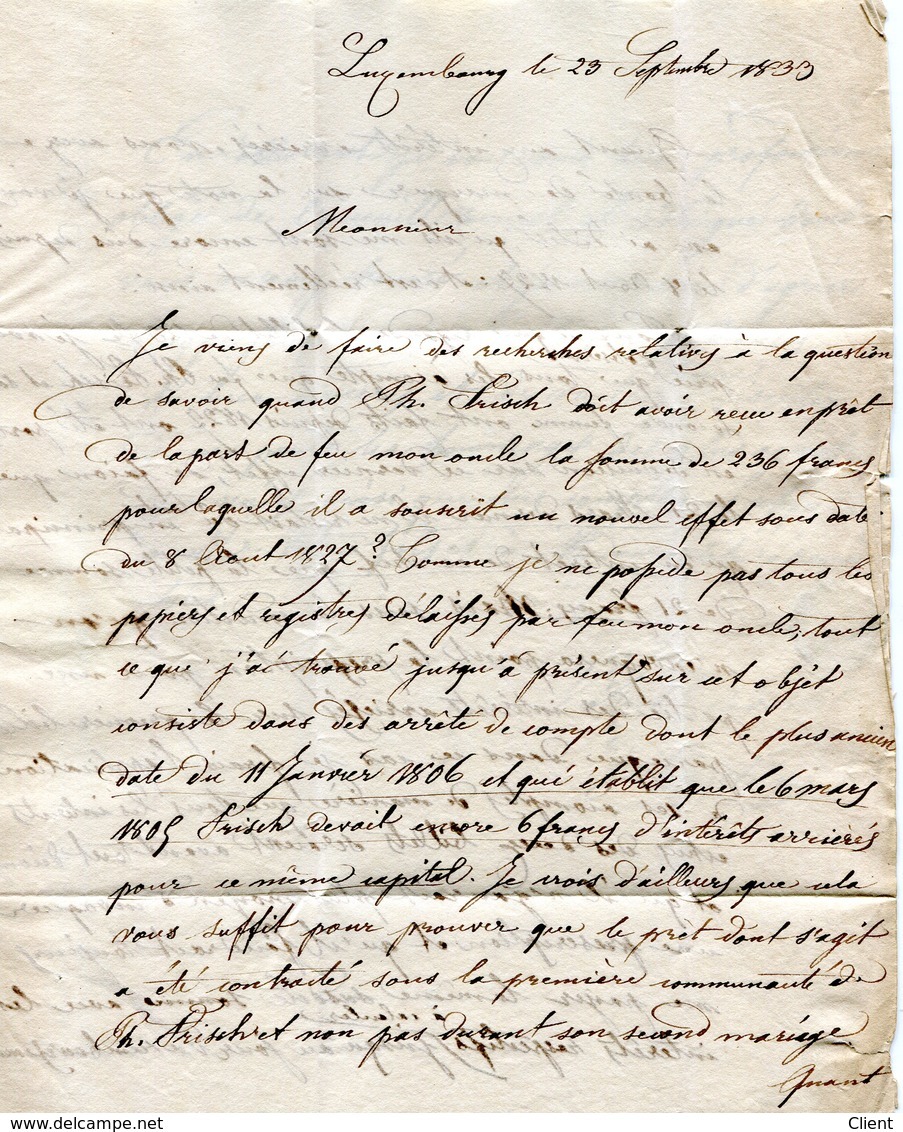 Luxembourg le 23 Septembre 1833
Monsieur
Je viens de faire des recherches relatives à la question
de savoir quand Ph. Frisch doit avoir reçu en prêt
de la part de feu mon oncle la somme de 236 francs
pour laquelle il a souscrit un nouvel effet sous date
du 8 Aout 1827? Comme je ne possede pas tous les
papiers et registres délaissés par feu mon oncle, tout
ce que j'ai trouvé jusqu'à présent sur cet objet
consiste dans des arrêté de compte dont le plus ancien
date du 11 Janvier 1806 et qui établit que le 6 mars
1805 Frisch devait encore 6 francs d'intérêts arrierés
pour ce même capital. Je crois d'ailleurs que cela
vous suffit pour prouver que le prêt dont s'agit
a été contracté sous la première communauté de
Ph. Frisch et non pas durant son second mariage
Quant
Client